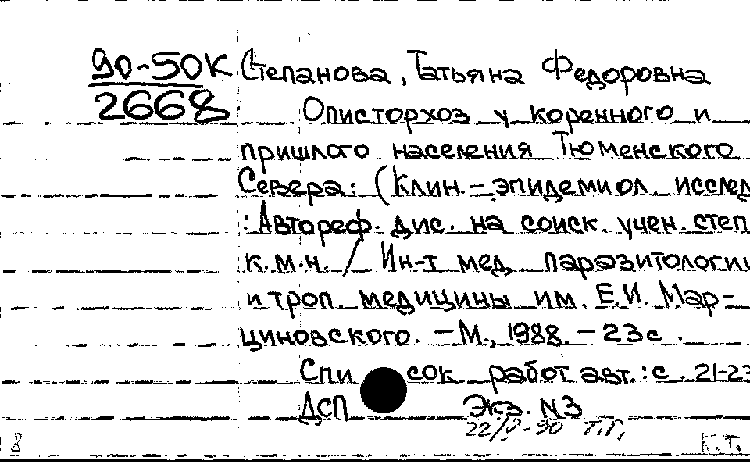 90-50К Степанова, Татьяна Федоровна
2668 Описторхоз у коренного и
пришлого населения Тюменского
Севера: (Клин.-эпидемиол. исслед
: Автореф. дис. на соиск. учен. степ
к.м.н. / Ин-т мед. паразитологии
и троп. медицины им. Е.И. Мар-
циновского. – М., 1988. – 23 с.
Список работ авт.: с. 21-23
ДСП Экз. N3
22/V-90 Т.Г,
8 К.Т.